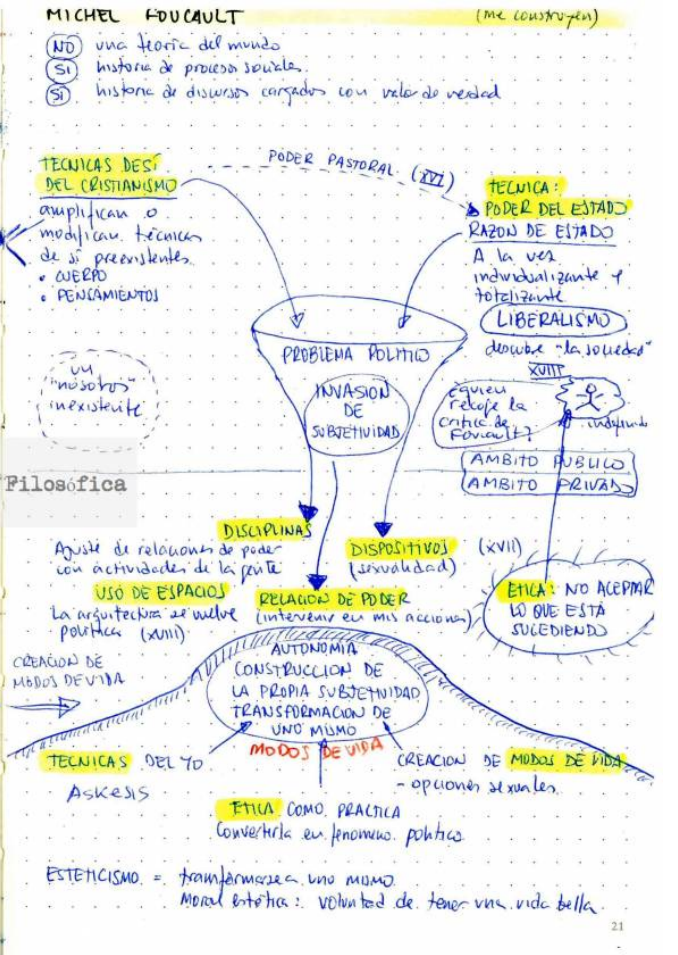 MICHEL FOUCAULT (me construyen)
NO una teoría del mundo
SI historia de procesos sociales.
SI historia de discursos cargados con valor de verdad
TECNICAS DE SÍ
DEL CRISTIANISMO
PODER PASTORAL (XVI)
amplifican o
modifican técnicas
de sí preexistentes.
• CUERPO
• PENSAMIENTOS
TECNICA:
PODER DEL ESTADO
RAZON DE ESTADO
A la vez
individualizante y
totalizante
LIBERALISMO
descubre "la sociedad"
XVIII
PROBLEMA POLITICO
INVASION
DE
SUBJETIVIDAD
un
"nosotros"
inexistente
¿quien
recoje la
critica de
Foucault?
indefinido
AMBITO PUBLICO
AMBITO PRIVADO
Filosófica
DISCIPLINAS
Ajuste de relaciones de poder
con actividades de la gente
DISPOSITIVOS (XVII)
(sexualidad)
USO DE ESPACIOS
La arquitectura se vuelve
política (XVIII)
RELACION DE PODER
(intervenir en mis acciones)
ETICA: NO ACEPTAR
LO QUE ESTÁ
SUCEDIENDO
CREACION DE
MODOS DE VIDA
AUTONOMIA
CONSTRUCCION DE
LA PROPIA SUBJETIVIDAD
TRANSFORMACION DE
UNO MISMO
MODOS DE VIDA
TECNICAS DEL YO
ASKESIS
CREACION DE MODOS DE VIDA
- opciones sexuales.
ETICA COMO PRACTICA
Convertirla en fenomeno politico
ESTETICISMO = transformarse a uno mismo.
Moral estética: voluntad de tener una vida bella.
21